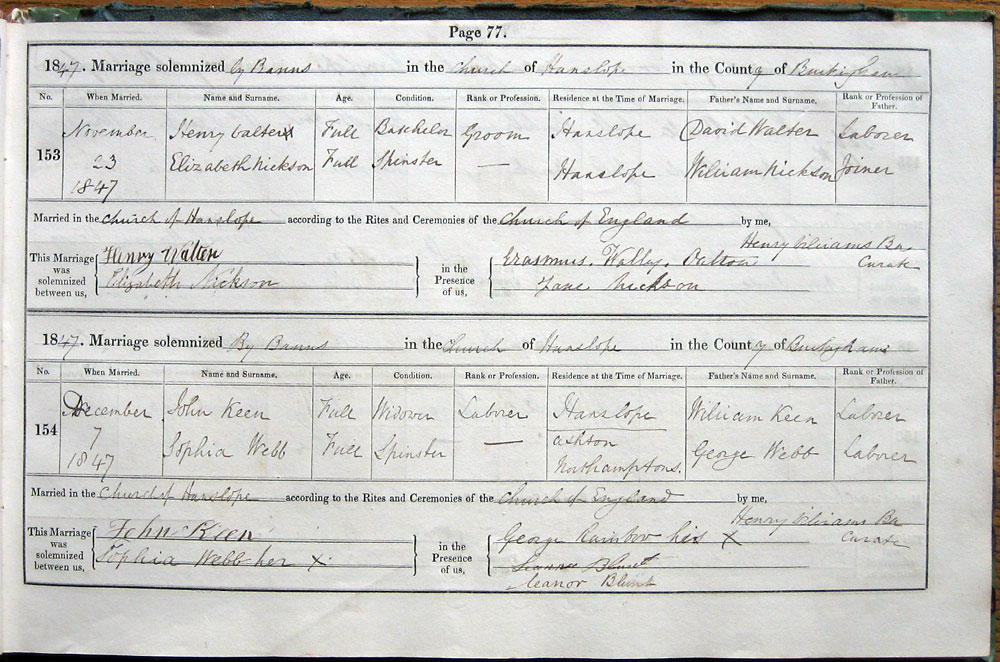 Page 77.
1847. Marriage solemnized by Banns in the Church of Hanslope in the County of Buckingham
No. When Married. Name and Surname. Age. Condition. Rank or Profession. Residence at the Time of Marriage. Father's Name and Surname. Rank or Profession of Father.
153 November 23 1847
Henry Walter Full Batchelor Groom Hanslope David Walter Laborer
Elizabeth Nickson Full Spinster — Hanslope William Nickson Joiner
Married in the Church of Hanslope according to the Rites and Ceremonies of the Church of England by me,
Henry Williams Ba.
Curate
This Marriage was solemnized between us, Henry Walter
Elizabeth Nickson
in the Presence of us, Erasmus Walley Dalton
Jane Nickson
1847. Marriage solemnized By Banns in the Church of Hanslope in the County of Buckingham
No. When Married. Name and Surname. Age. Condition. Rank or Profession. Residence at the Time of Marriage. Father's Name and Surname. Rank or Profession of Father.
154 December 7 1847
John Keen Full Widower Laborer Hanslope William Keen Laborer
Sophia Webb Full Spinster — Ashton Northamptons. George Webb Laborer
Married in the Church of Hanslope according to the Rites and Ceremonies of the Church of England by me,
Henry Williams Ba
Curate
This Marriage was solemnized between us, John Keen
Sophia Webb her x
in the Presence of us, George Rainbow his x
Blunt
leanor Blunt